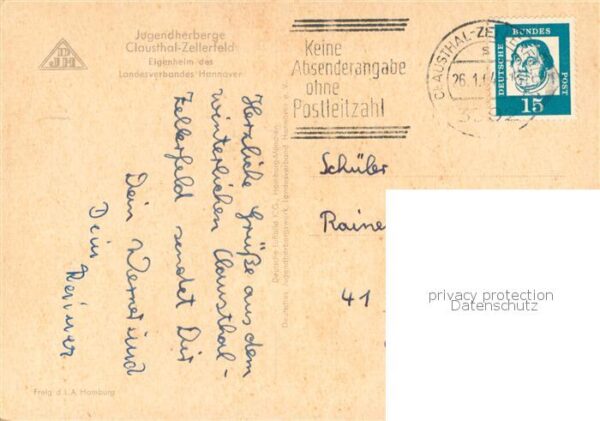 DJH
Jugendherberge
Clausthal-Zellerfeld
Eigenheim des
Landesverbandes Hannover
Keine
Absenderangabe
ohne
Postleitzahl
CLAUSTHAL-ZE
26.1.
DEUTSCHE BUNDES POST
15
Herzliche Grüße aus dem
winterlichen Clausthal-
Zellerfeld sendet Dir
Dein Werner und
Dein
Reiner
Schüler
Raine
41
privacy protection
Datenschutz
Freig d L.A. Hamburg